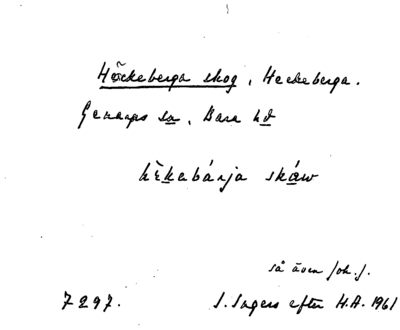 Häckeberga skog, Heckeberga.
Genarps sn, Bara hd
hɛ̀kabárja skáw
så även Joh. J.
7297. I. Ingers efter H.A. 1961